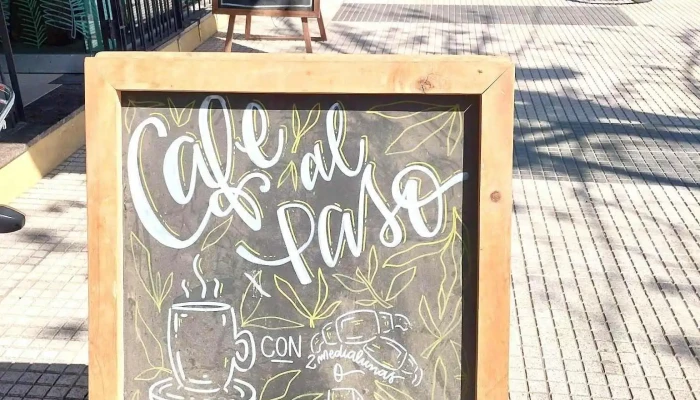 Café al
Paso
x
CON
2 medialunas
o